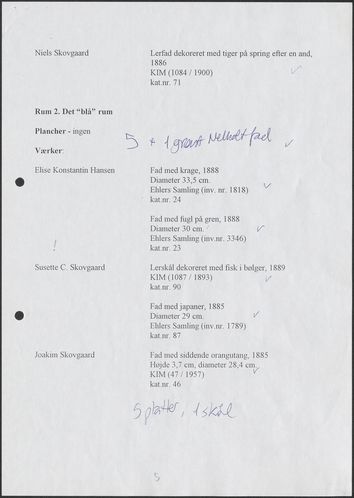 Niels Skovgaard Lerfad dekoreret med tiger på spring efter en and,
1886
KIM (1084 / 1900)
kat.nr. 71
Rum 2. Det "blå" rum
Plancher - ingen
5 + 1 grønt fad
Værker:
Elise Konstantin Hansen Fad med krage, 1888
Diameter 33,5 cm.
Ehlers Samling (inv. nr. 1818)
kat.nr. 24
Fad med fugl på gren, 1888
Diameter 30 cm.
Ehlers Samling (inv.nr. 3346)
kat.nr. 23
!
Susette C. Skovgaard Lerskål dekoreret med fisk i bølger, 1889
KIM (1087 / 1893)
kat.nr. 90
Fad med japaner, 1885
Diameter 29 cm.
Ehlers Samling (inv.nr. 1789)
kat.nr. 87
Joakim Skovgaard Fad med siddende orangutang, 1885
Højde 3,7 cm, diameter 28,4 cm.
KIM (47 / 1957)
kat.nr. 46
5 platter, 1 skål
5